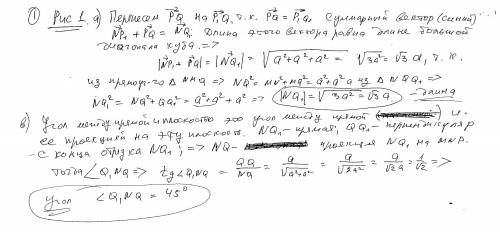 ① Рис 1. а) Перенесем P͞Q на P₁Q₁ т.к. P͞Q = P͞₁Q₁ Суммарный вектор (синий)
N͞P₁ + P͞Q = N͞Q₁. Длина этого вектора равна длине большой
диагонали куба. =>
|N͞P₁ + P͞Q| = |N͞Q₁| = √a²+a²+a² = √3a² = √3 a, т.к.
из прямоуг-го Δ NMQ => NQ² = MN²+MQ² = a²+a² из Δ NQQ₁ =>
NQ₁² = NQ²+QQ₁² = a²+a²+a² => |NQ₁| = √3a² = √3 a - длина
в) Угол между прямой и плоскостью это угол между прямой и
ее проекцией на эту плоскость. NQ₁ - прямая, QQ₁ - перпендикуляр
- с конца отрезка NQ₁; => NQ - проекция NQ₁ на MNP.
тогда ∠Q₁NQ => tg∠Q₁NQ = QQ₁/NQ = a/√a²+a² = a/√2a² = a/√2a = 1/√2 =>
Угол ∠Q₁NQ = 45°